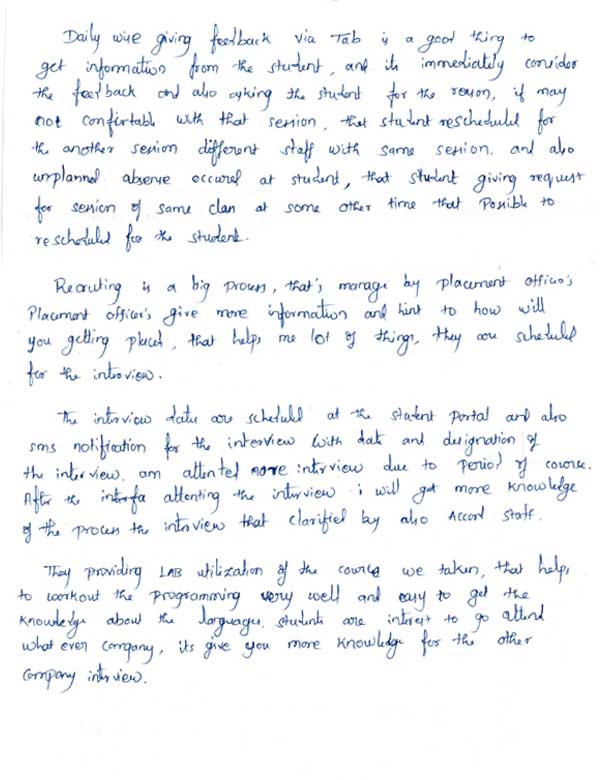 Daily wise giving feedback via Tab is a good thing to
get information from the student, and its immediately consider
the feedback and also asking the student for the reason, if may
not comfirtable with that session, that student rescheduled for
the another session different staff with same session. and also
unplanned absense occured at student, that student giving request
for session of same class at some other time that Possible to
rescheduled for the student.
Recruting is a big process, that's manage by placement officer's
Placement officer's give more information and hint to how will
you getting placed, that helps me lot of things, they are scheduled
for the interview.
The interview dates are scheduled at the student portal and also
sms notification for the interview with date and designation of
the interview. am attented more interview due to period of course.
After the interfa attenting the interview i will get more knowledge
of the process the interview that clarified by also Accord staff.
They providing LAB utilization of the course we taken, that helps
to workout the programming very well and easy to get the
knowledge about the languages. students are interest to go attend
what ever company, its give you more knowledge for the other
company interview.